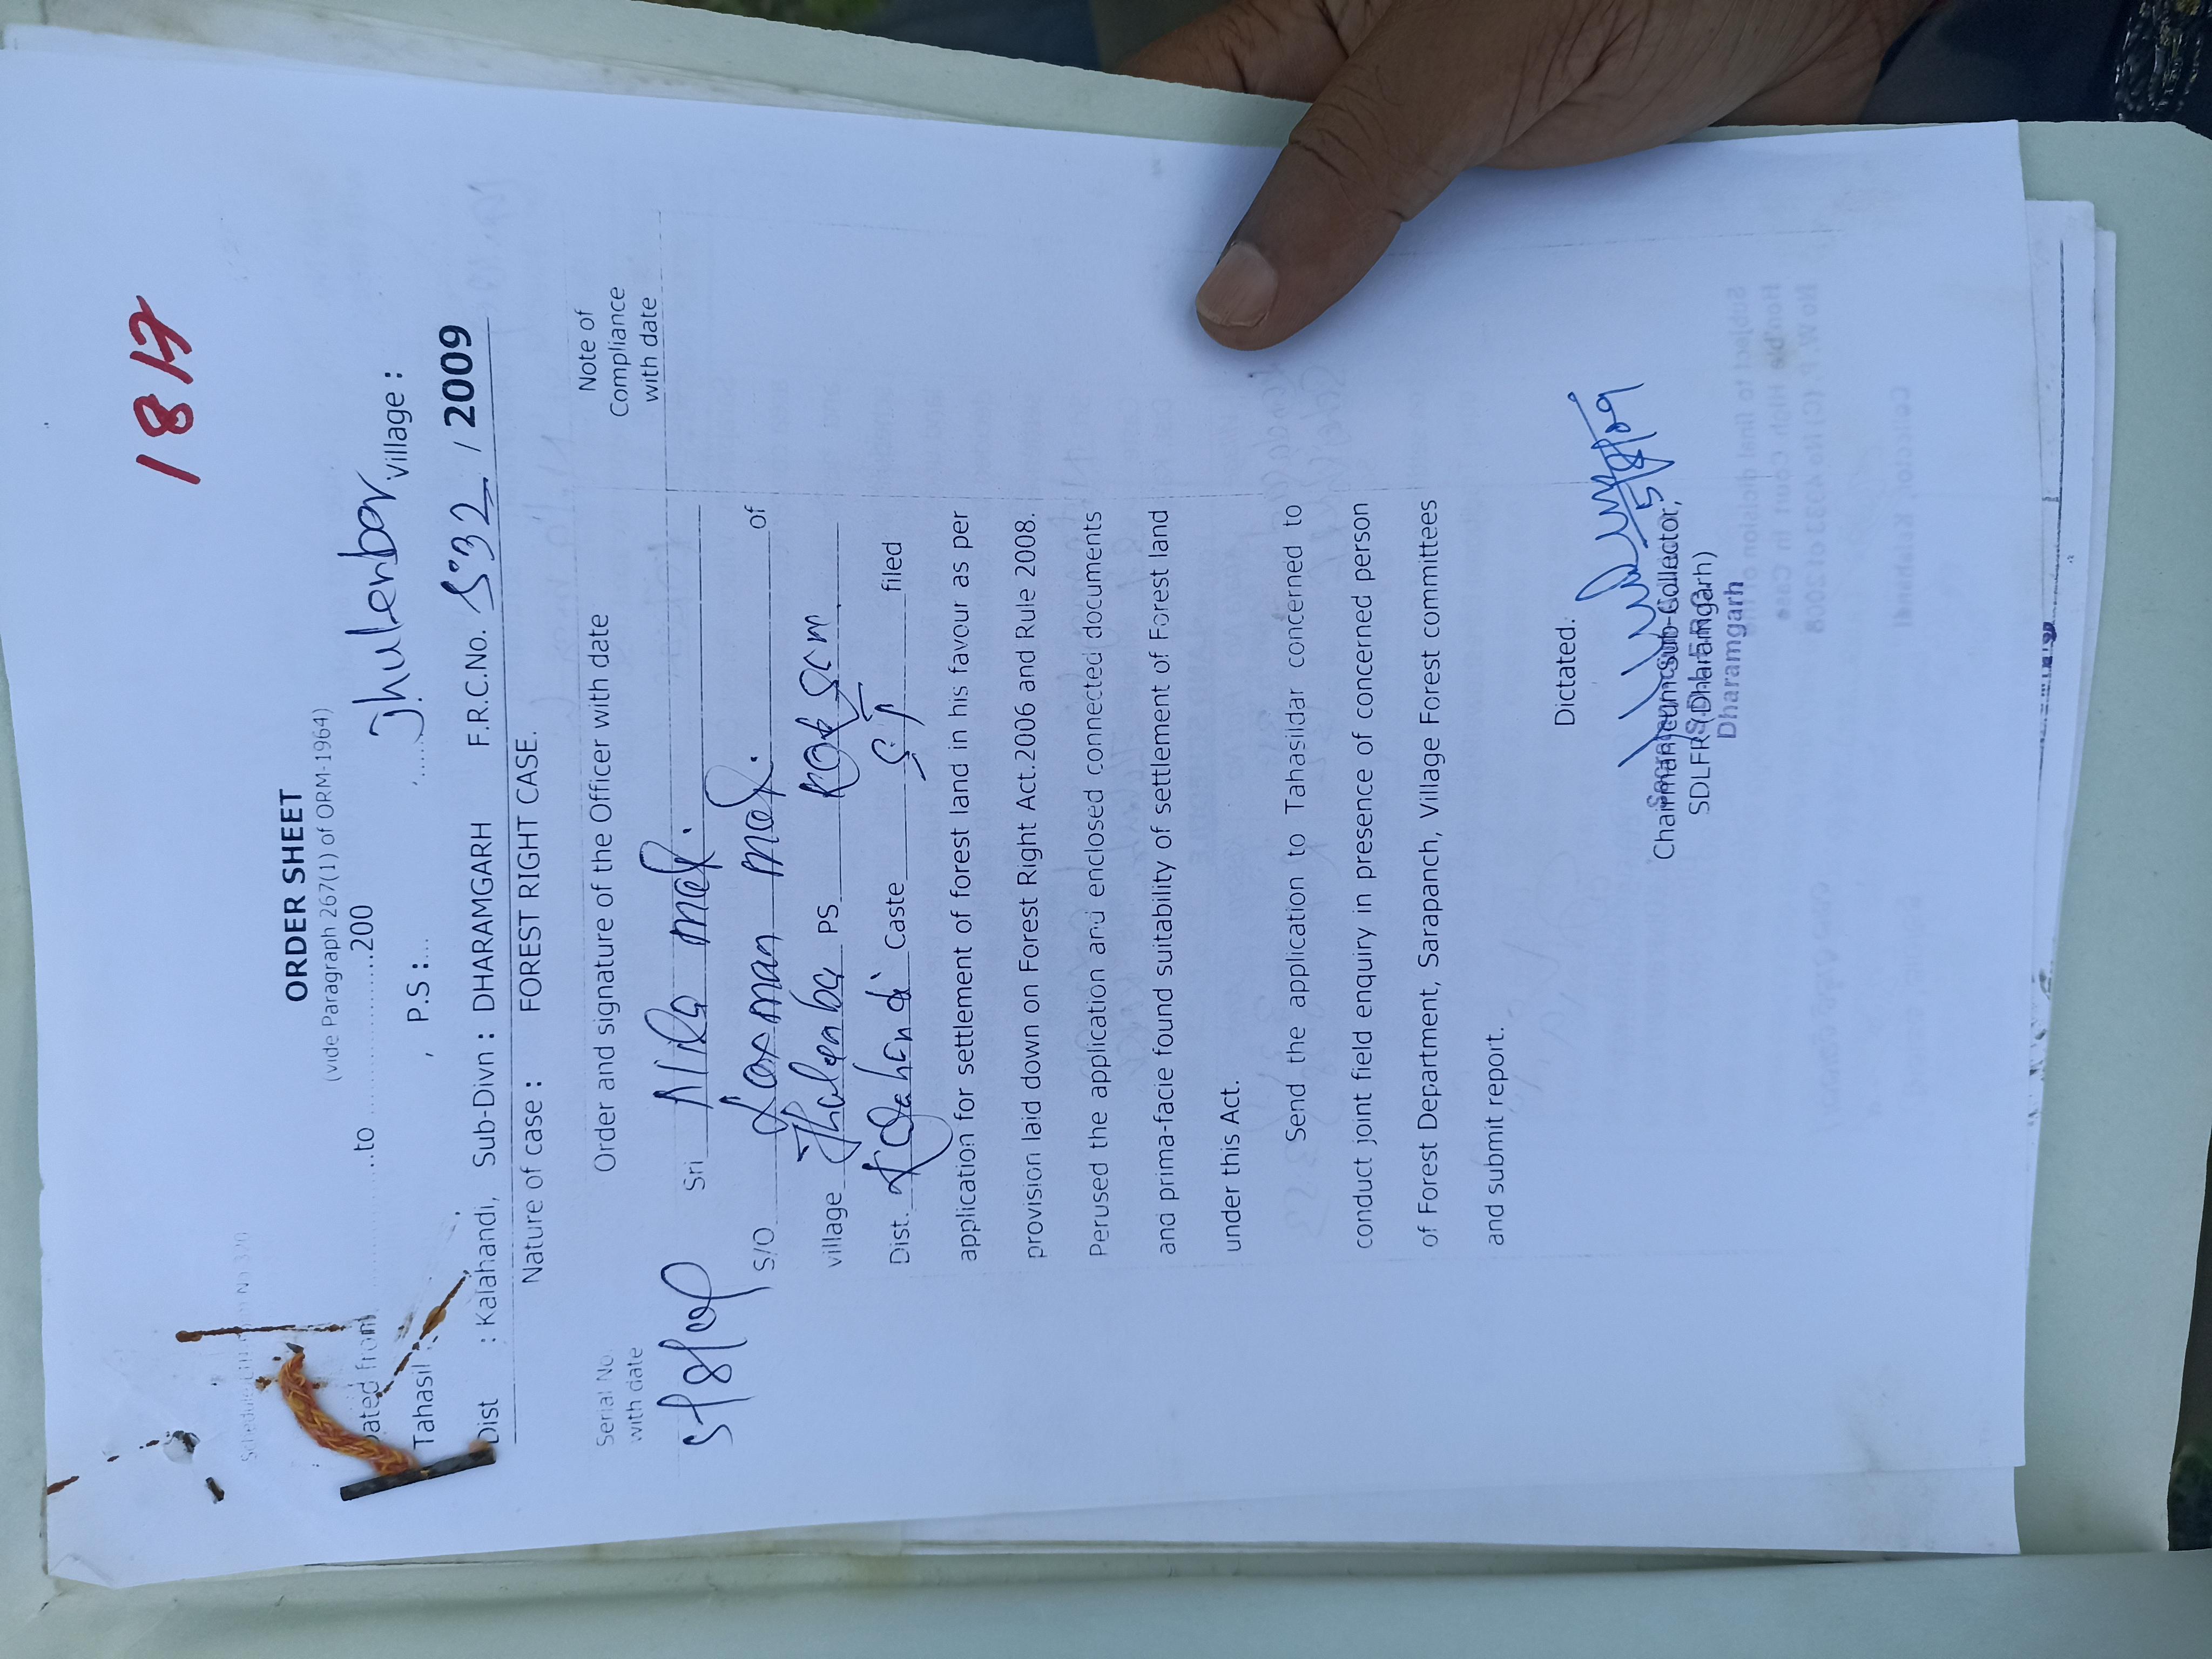 1817
ORDER SHEET
(vide Paragraph 267(1) of ORM-1964)
Dated from ..................to ..................200
Tahasil : , P.S :.... Jhulenbar Village :
Dist : Kalahandi, Sub-Divn : DHARAMGARH F.R.C.No. 532 / 2009
Nature of case : FOREST RIGHT CASE.
Serial No. with date
Order and signature of the Officer with date
Note of Compliance with date
5/8/09 Sri Nila
S/O Laxman of
village PS
Dist. Kalahandi Caste S.T filed
application for settlement of forest land in his favour as per
provision laid down on Forest Right Act.2006 and Rule 2008.
Perused the application and enclosed connected documents
and prima-facie found suitability of settlement of Forest land
under this Act.
Send the application to Tahasildar concerned to
conduct joint field enquiry in presence of concerned person
of Forest Department, Sarapanch, Village Forest committees
and submit report.
Dictated:
5/8/09
Chairman-cum-Sub-Collector,
SDLFRC (Dharamgarh)
Dharamgarh